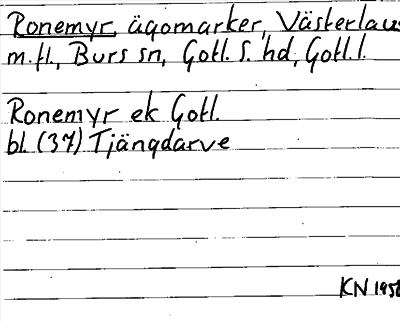 Ronemyr, ägomarker, Västerlaus
m.fl., Burs sn, Gotl. S. hd, Gotl. l.
Ronemyr ek Gotl.
bl. (37) Tjängdarve
KN 195